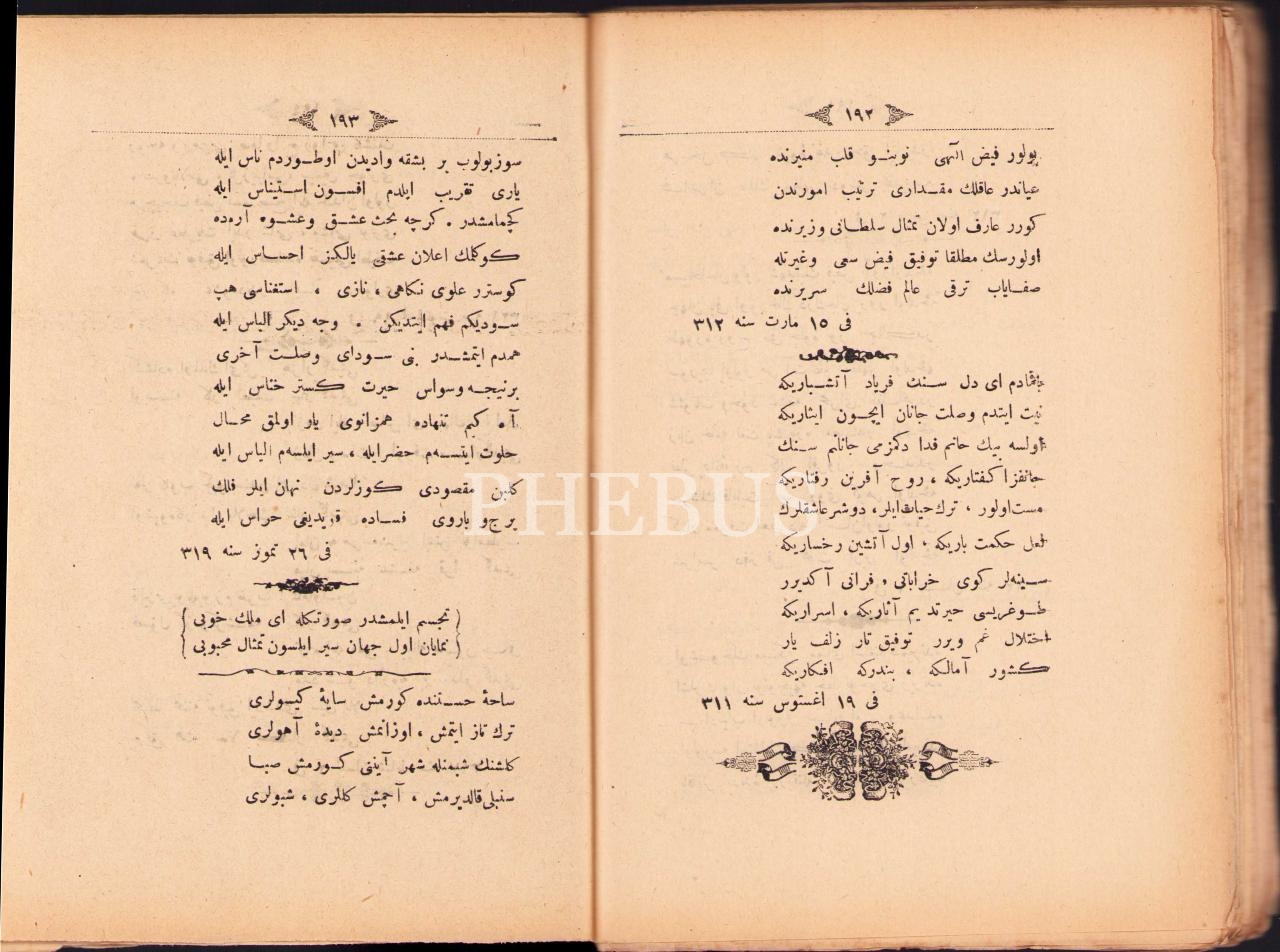 ١٩٢
بولور فيض الٓهى نوبنو قلب منيرنده
عياندر عاقلك مقدارى ترتيب امورندن
كورر عارف اولان تمثال سلطانى وزيرنده
اولورسك مطلقا توفيق فيض سعى وغيرتله
صفاياب ترقى عالم فضلك سريرنده
فى ١٥ مارت سنه ٣١٢
اى دل سنك فرياد آتشباريكه
نيت ايتدم وصلت جانان ايچون ايثاريكه
اولسه بيك جانم فدا دكزمى جانانم سنك
جانفزا كفتاريكه ، روح آفرين رفتاريكه
مست اولور ، ترك حيات ايلر ، دوشر عاشقلرك
لعل حكمت باريكه ، اول آتشين رخساريكه
سينه‌لر كوى خراباتى ، فرانى آكديرر
طوغريسى حيرتديم آثاريكه ، اسراريكه
اختلال غم ويرر توفيق تار زلف يار
كشور آمالكه ، بندركه افكاريكه
فى ١٩ اغستوس سنه ٣١١
١٩٣
سوزبولوب بر بشقه واديدن اوطوردم ناس ايله
يارى تقريب ايلدم افسون استيناس ايله
كچمامشدر . كرچه بحث عشق وعشوه آره‌ده
كوكلك اعلان عشقى يالكز احساس ايله
كوسترر علوى نكاهى ، نازى ، استغناسى هپ
سوديكم فهم ايتديكن . وجه ديكر الباس ايله
همدم ايتمشدر بنى سوداى وصلت آخرى
برنيجه وسواس حيرت كستر خناس ايله
آه كيم تنهاده همزانوى يار اولمق محال
خلوت ايتسه‌م خضرايله ، سير ايلسه‌م الياس ايله
كلبن مقصودى كوزلردن نهان ايلر فلك
برج و باروى فساده قويديغى حراس ايله
فى ٢٦ تموز سنه ٣١٩
( تجسم ايلمشدر صورتكله اى ملك خوبى )
( نمايان اول جهان سير ايلسون تمثال محبوبى )
ساحهٔ حسننده كورمش سايهٔ كيسولرى
ترك تاز ايتمش ، اوزاتمش ديدهٔ آهولرى
كلشنك شبنمله شهر آيننى كورمش صبا
سنبلى قالديرمش ، آچمش كللرى ، شبولرى
PHEBUS